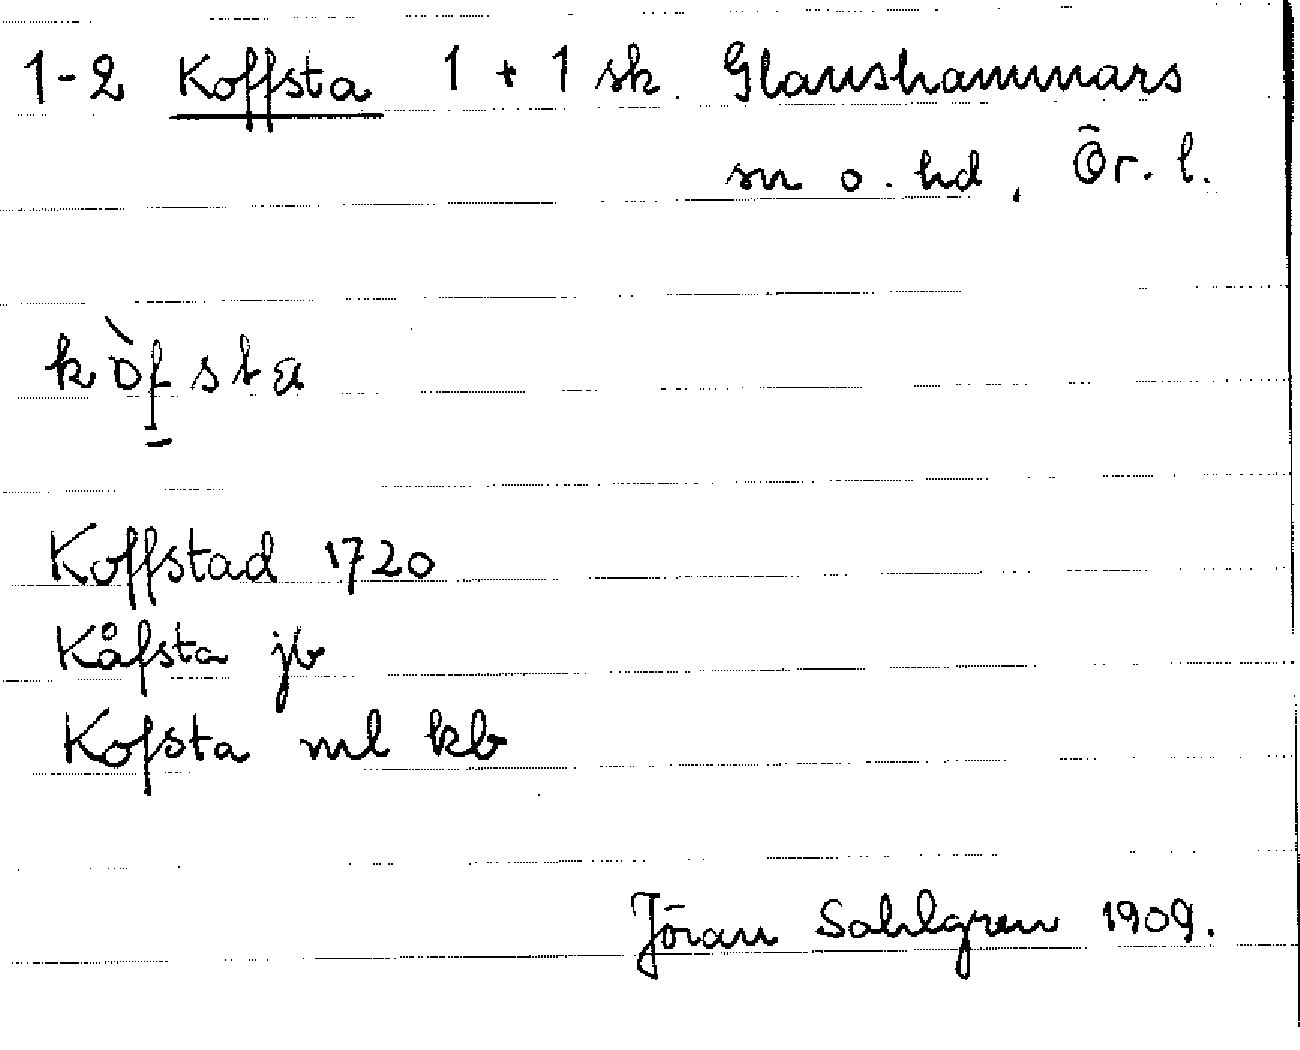 1-2 Koffsta 1 + 1 sk. Glanshammars
sn o. hd, Ör. l.
kòfsta
Koffstad 1720
Kåfsta jb
Kofsta ml kb
Jöran Sahlgren 1909.